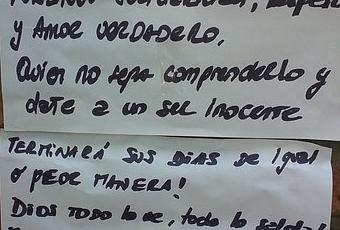 y Amor VERDADERO,
Quien no sepa comprenderlo y
a un ser Inocente
TERMINARÁ SUS DÍAS de Igual
o PEOR MANERA!
DIOS TODO lo ve, todo lo